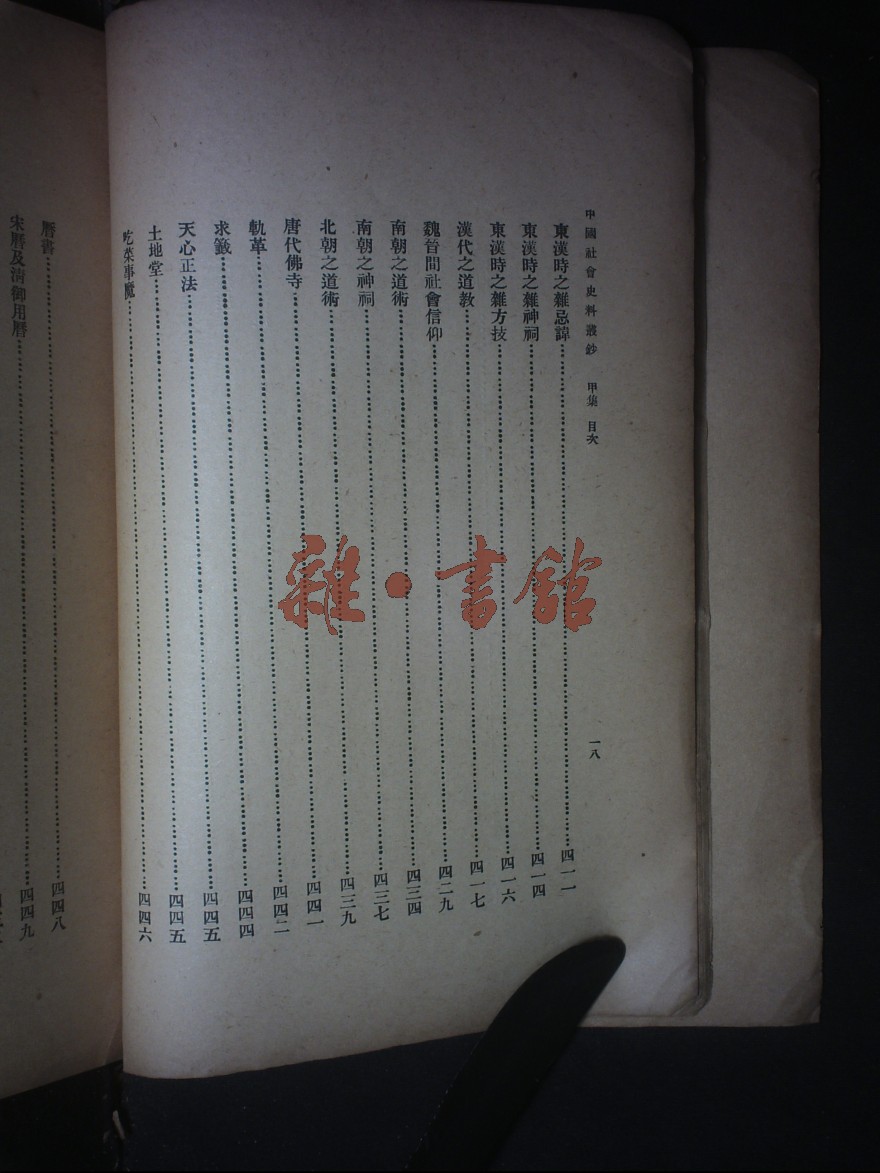 中國社會史料叢鈔 甲集 目次 一八
東漢時之雜忌諱……四一一
東漢時之雜神祠……四一四
東漢時之雜方技……四一六
漢代之道教……四一七
魏晉間社會信仰……四二九
南朝之道術……四三四
南朝之神祠……四三七
北朝之道術……四三九
唐代佛寺……四四一
軌革……四四二
求籤……四四四
天心正法……四四五
土地堂……四四五
吃菜事魔……四四六
曆書……四四八
宋曆及清御用曆……四四九
雜·書館